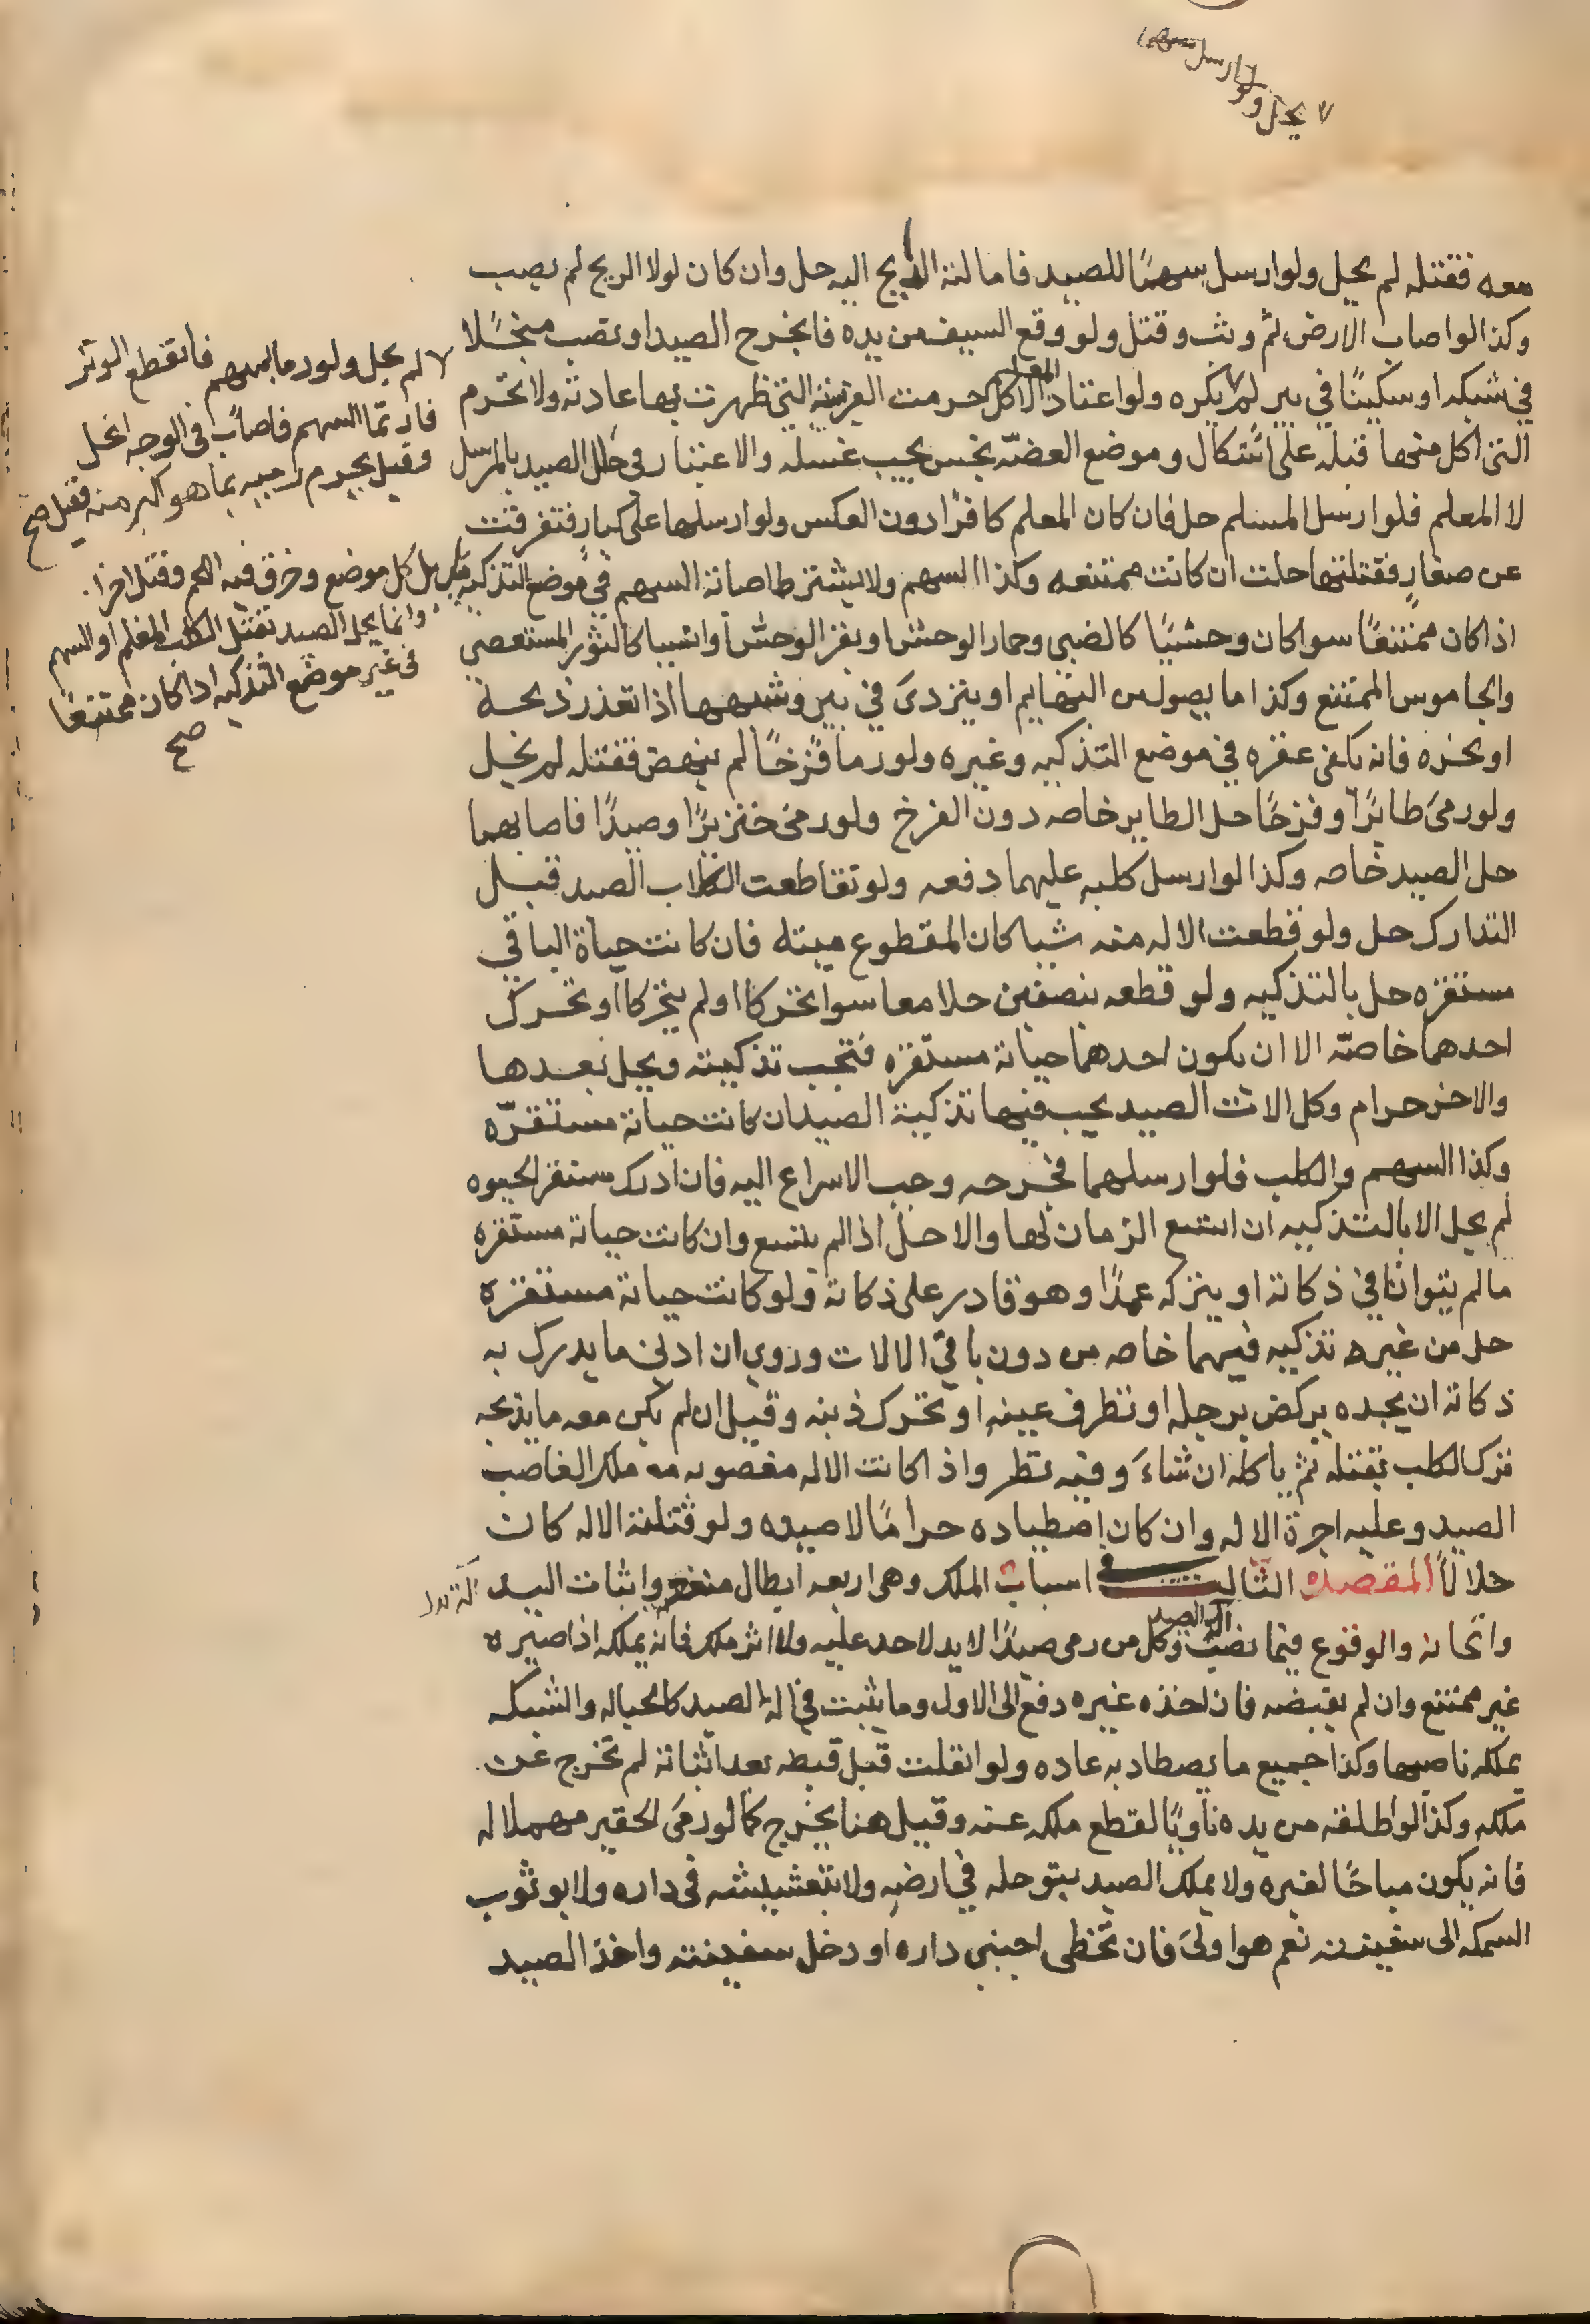 لا يحل ولو ارسل سهما
معه فقتله لم يحل ولو ارسل سهمًا للصيد فامالته الريح اليه حل وان كان لولا الريح لم يصب
وكذا لو اصاب الارض ثم وثب وقتل ولو وقع السيف من يده فانجرح الصيد او نصب منجلًا
في شبكه او سكينًا في بير لم يكره ولو اعتاد المعلم الاكل حرمت الفريسة التي ظهرت بها عادته ولا تحرم
التي اكل منها قبله على اشكال وموضع العضّه نجس يجب غسله والاعتبار في حل الصيد بالمرسل
لا المعلم فلو ارسل المسلم حل فان كان المعلم كافرًا دون العكس ولو ارسلها على كبارٍ فتفرقت
عن صغارٍ فقتلتها حلت ان كانت ممتنعه وكذا السهم ولا يشترط اصابة السهم في موضع التذكيه
اذا كان ممتنعًا سوا كان وحشيًا كالضبي وحمار الوحش او بقر الوحش او انسيا كالثور المستعصي
والجاموس الممتنع وكذا ما يصول من البهايم او يتردى في بير وشبهها اذا تعذر ذبحه
او نحره فانه يكفي عقره في موضع التذكيه وغيره ولو رما فرخًا لم ينهض فقتله لم يحل
ولو رمى طايرًا وفرخًا حل الطاير خاصه دون الفرخ ولو رمى خنزيرًا وصيدًا فاصابهما
حل الصيد خاصه وكذا لو ارسل كلبه عليهما دفعه ولو تقاطعت الكلاب الصيد قبل
التدارك حل ولو قطعت الاله منه شيا كان المقطوع ميتة فان كانت حياة الباقي
مستقره حل بالتذكيه ولو قطعه بنصفين حلا معا سوا تحركا او لم يتحركا او تحرك
احدهما خاصّه الا ان يكون احدهما حياته مستقره فتجب تذكيته ويحل بعدها
والاخر حرام وكل الات الصيد يجب فيها تذكية الصيد ان كانت حياته مستقرّه
وكذا السهم والكلب فلو ارسلهما فجرحه وجب الاسراع اليه فان ادركه مستقر الحيوه
لم يحل الا بالتذكيه ان اتسع الزمان لها والا حل اذا لم يتسع وان كانت حياته مستقره
ما لم يتوانا في ذكاته او يتركه عمدًا وهو قادر على ذكاته ولو كانت حياته مستقره
حل من غير تذكيه فيهما خاصه من دون باقي الالات وروي ان ادنى ما يدرك به
ذكاته ان يجده يركض برجله او تطرف عينه او تحرك ذنبه وقيل ان لم يكن معه ما يذبحه
ترك الكلب يقتله ثم ياكله ان شاءَ وفيه نظر واذا كانت الاله مغصوبه ملك الغاصب
الصيد وعليه اجرة الاله وان كان اصطياده حرامًا لا صيده ولو قتلته الاله كان
حلالًا المقصد الثالث في اسباب الملك وهي اربعه ابطال منعه واثبات اليد
واثخانه والوقوع فيما نصب الة الصيد وكل من رمى صيدًا لا يد لاحد عليه ولا اثر ملك فانه يملكه اذا صيره
غير ممتنع وان لم يقبضه فان اخذه غيره دفع الى الاول وما يثبت في الة الصيد كالحباله والشبكه
يملكه ناصبها وكذا جميع ما يصطاد به عاده ولو انفلت قبل قبضه بعد اثباته لم تخرج عن
ملكه وكذا لو اطلقه من يده ناويًا لقطع ملكه عنه وقيل هنا يخرج كما لو رمى الحقير مهملا له
فانه يكون مباحًا لغيره ولا يملك الصيد بتوحله في ارضه ولا بتعشيشه في داره ولا بوثوب
السمكه الى سفينته نعم هو اولى فان تخطى اجنبي داره او دخل سفينته واخذ الصيد
لم يحل ولو رما بسهم فانقطع الوتر
فارتمّا السهم فاصاب في الوجه انحل
وقيل يحرم رميه بما هو اكبر منه فقيل صح
كل موضع وخرق فيه اللحم وقتل اخرا
وانما يحل الصيد بقتل الكلب المعلم او السهم
في غير موضع التذكيه اذا كان ممتنعًا
صح